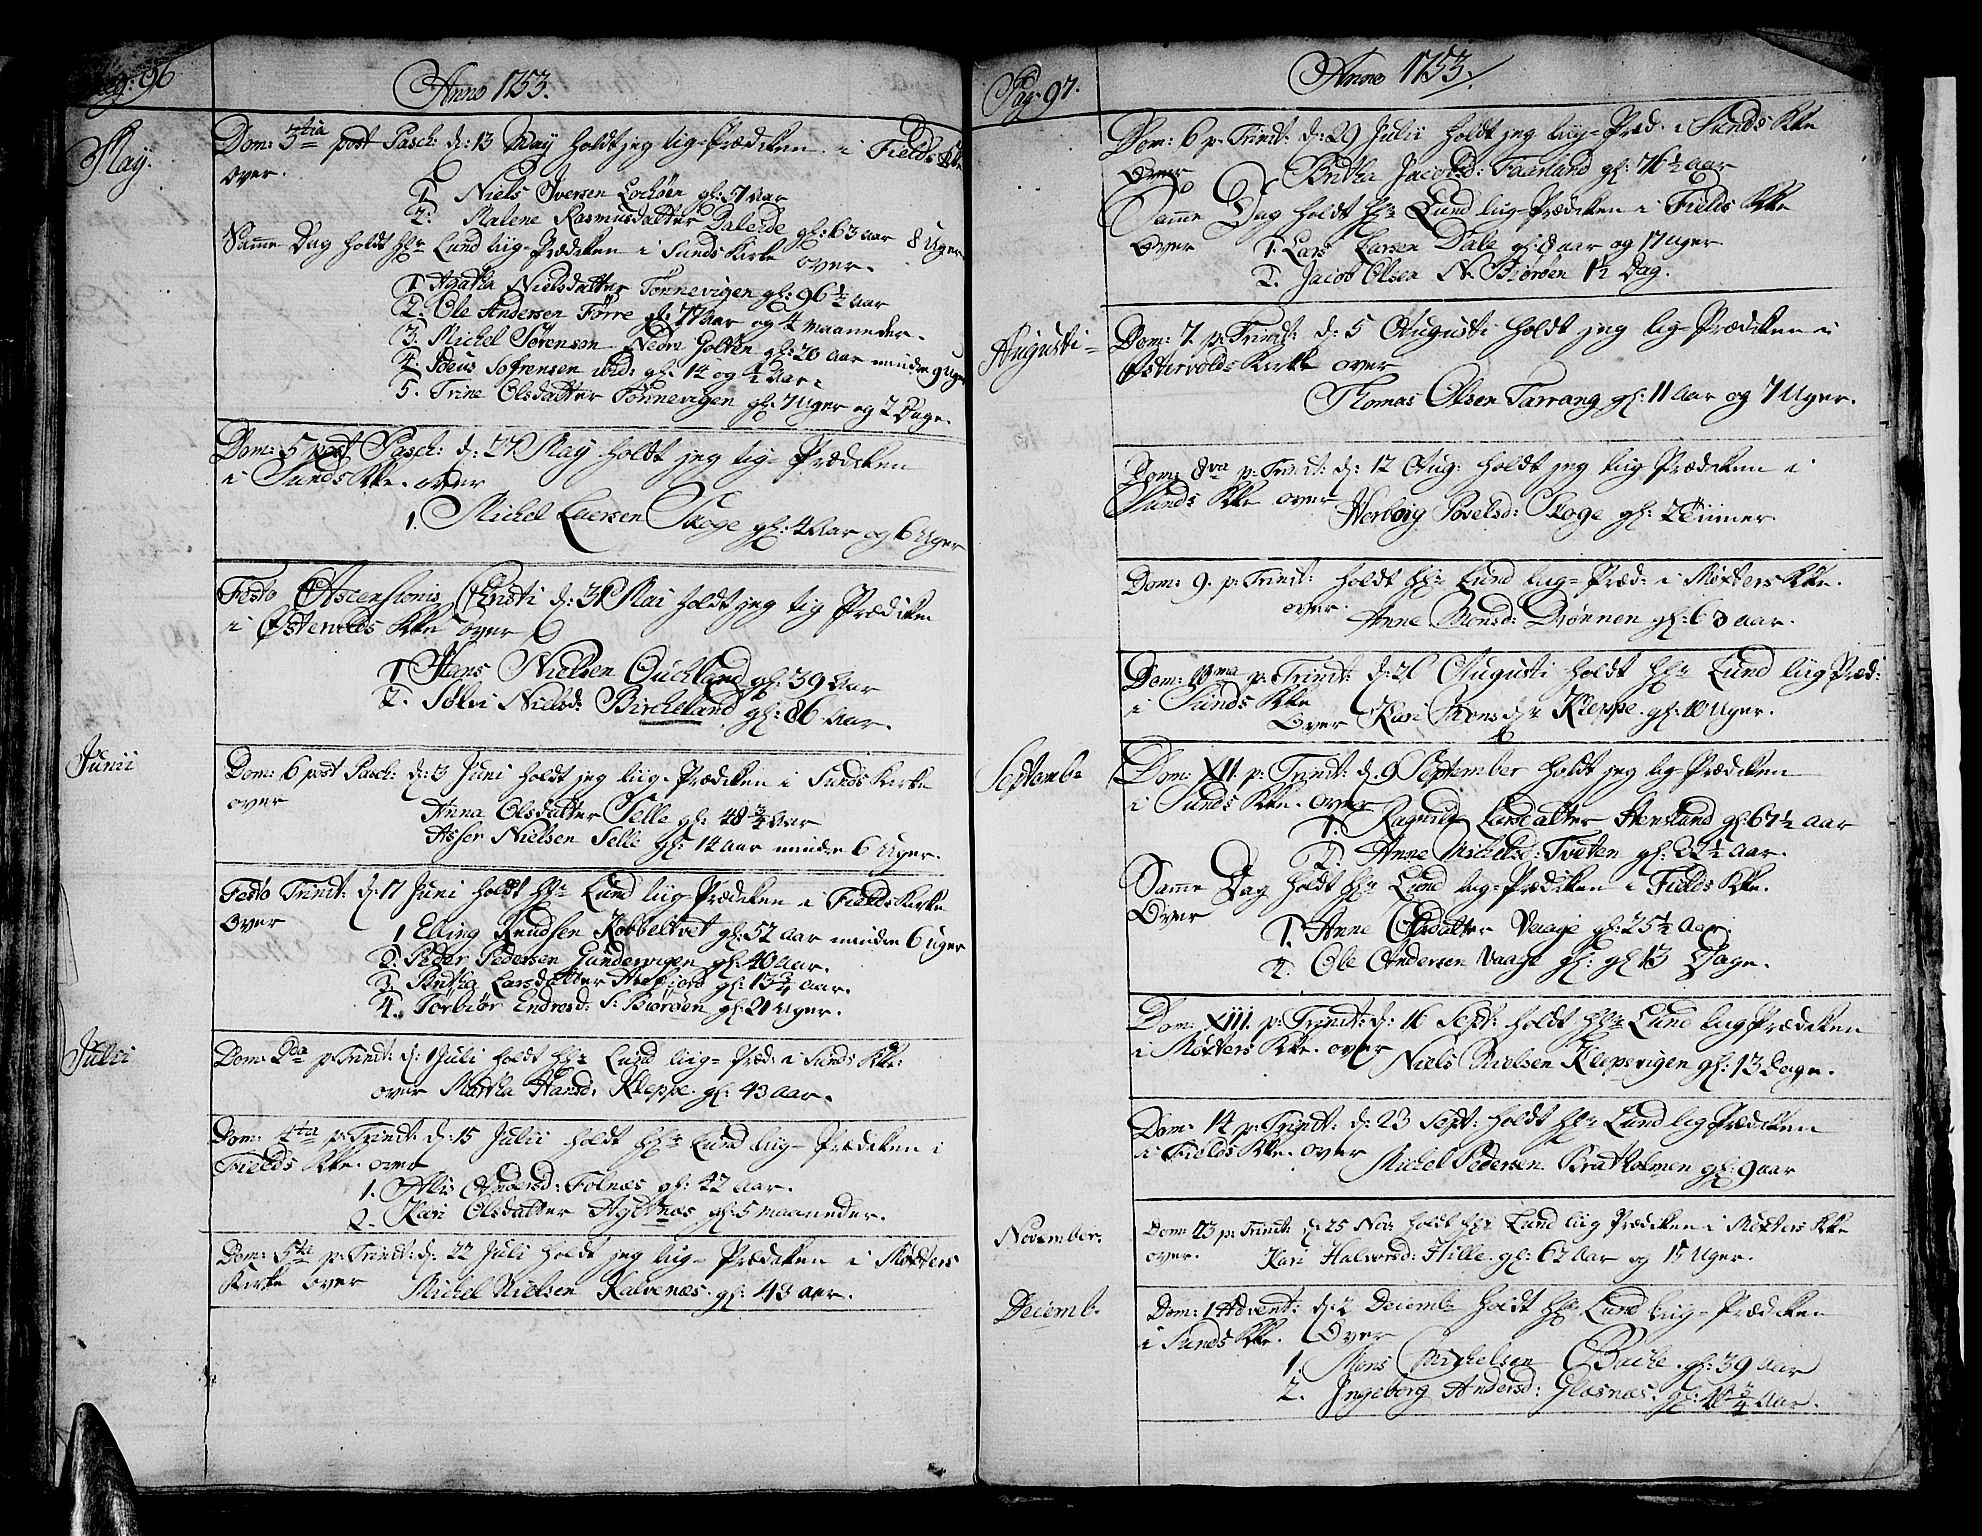 Pag: 96
Anno 1753.
May.
Dom: 3tia post Pasch: d: 13 May holdt jeg liig-Prædiken i Fields Kke
over.
1 Niels Iversen Lochøen gl: 7 Aar
2: Malene Rasmusdatter Daleide gl: 63 aar 8 Uger
Samme Dag holdt Hr Lund liig-Prædiken i Sunds Kirke over.
1 Agatha Nielsdatter Tønnevigen gl: 96 1/2 Aar
2. Ole Andersen Førre gl: 77 Aar og 4 maaneder.
3. Michel Sørensen Nedre Golten gl: 20 aar mindre 9 uger
4. Sofrensen ibid: gl: 14 og 1/2 Aar:
5. Trine Olsdatter Tønnevigen gl: 7 Uger og 2 Dage.
Dom: 5 post Pasch: d: 27 May holdt jeg liig-Prædiken
i Sunds Kke. over
1. Michel Larsen Skoge gl: 4 Aar og 6 Uger
Festo Ascensionis Christi d: 31 Mai holdt jeg liig Prædiken
i Østervolds Kke over
1 Hans Nielsen Ouchland gl: 39 Aar
2. Nielsd: Bircheland gl: 86 Aar.
Junii
Dom: 6 post Pasch: d: 3 Juni holdt jeg liig-Prædiken i Sunds Kirke
over
Anna Olsdatter Selle gl: 48 3/4 Aar
Asser Nielsen Selle gl: 14 aar mindre 6 Uger.
Festo Trinit: d: 17 Juni holdt Hr Lund liig-Prædiken i Fields Kirke
over
1 Elling Knudsen Kobbeltvet gl: 52 aar mindre 6 uger
2. Peder Pedersen Gundersvigen gl: 40 Aar.
3. Britha Larsdatter gl: 13 3/4 aar.
4. Torbiør Endresd: S: Biørøen gl: 21 Uger.
Julii
Dom: 2da p: Trinit: d: 1 Juli holdt Hr Lund liig-Præd: i Sunds Kke:
over Martha Hansd: Kleppe gl: 43 aar.
Dom: 4ta p: Trinit: d: 15 Julii holdt Hr Lund liig-Prædiken i
Fields Kke. over
1. Andersd: Folnæs gl: 42 aar.
2. Kari Olsdatter Agltnæs gl: 5 maaneder.
Dom: 5ta p: Trinit: d: 22 Juli holdt jeg liig-Prædiken i Møxters
Kirke over Michel Nielsen Kalvenæs. gl: 43 aar.
Pag: 97.
Anno 1753.
Dom: 6 p: Trinit: d: 29 Julii holdt jeg liig-Præd: i Sunds Kke
over Britha Jacobsd: Faarland gl: 76 1/2 Aar
Samme Dag holdt Hr Lund liig-Prædiken i Fields Kke
over 1. Lars Larsen Dale gl: 8 aar og 17 Uger
2. Jacob Olsen N. Biørøen 1 1/2 Dag.
Augusti
Dom: 7 p: Trinit: d: 5 Augusti holdt jeg lig-Prædiken i
Østervolds Kirke over
Thomas Olsen Tarrang gl: 11 Aar og 7 Uger.
Dom: 8va p: Trinit: d: 12 Aug: holdt jeg liig Prædiken i
Sunds Kke over Herborg Povelsd: Skoge gl: 2 Tiimer
Dom: 9. p: Trinit: holdt Hr Lund liig-Præd: i Møxters Kke.
over. Anne Monsd: Drønnen gl: 63 aar.
Dom: 10ma p: Trinit: d: 26 Augusti holdt Hr Lund liig Præd:
i Sunds Kke
over Kari Monsdtr Kleppe gl: 10 Uger.
Septembr
Dom: XII. p: Trinit: d: 9 September holdt jeg lig-Prædiken
i Sunds Kke. over
1. Ragnild Larsdatter Hensland gl: 67 1/2 aar
2. Anne Michelsd: Tveten gl: 22 1/2 Aar.
Samme Dag holdt Hr Lund liig-Prædiken i Fields Kke.
Over
1. Anne Olsdatter Vaage gl: 25 1/2 Aar.
2. Ole Andersen Vaage gl: gl 13 Dage.
Dom: XIII. p: Trinit: d: 16 Sept: holdt Hr Lund liig Prædiken
i Møxters Kke. over Niels Nielsen Klepsvigen gl: 13 Dage.
Dom: 14 p: Trinit: d: 23 Sept: holdt Hr Lund lig Prædiken
i Fields Kke. over Michel Pedersen Bratholmen gl: 9 aar
November.
Dom: 23 p: Trinit: d: 25 Nov: holdt Hr Lund liig Prædiken i Møxters Kke
over. Kari Halvorsd: Hille. gl: 62 Aar og 15 Uger.
Decemb.
Dom: 1 Advent: d: 2 Decembr holdt Hr Lund liig-Prædiken
i Sunds Kke. Over
1. Mons Michelsen Bache gl: 39 aar
2. Ingeborg Andersd: Glesnæs. gl: 10 3/4 Aar.